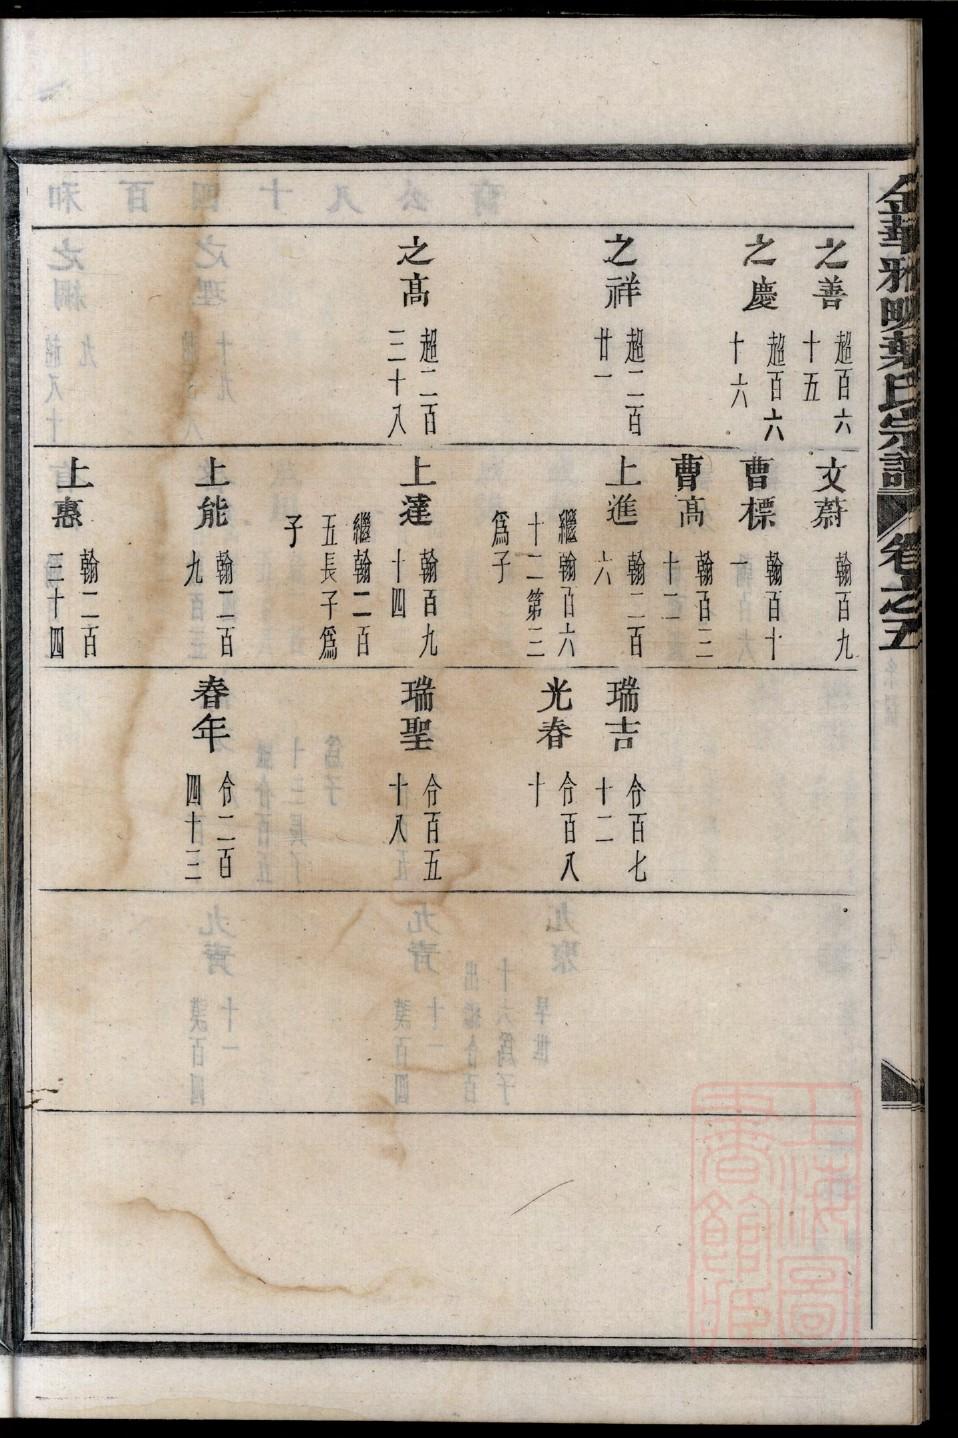 金華雅畈葉氏宗譜 卷之五
之善 超百六十五
之慶 超百六十六
之祥 超二百廿一
之高 超二百三十八
文蔚 翰百九
曹標 翰百十一
曹高 翰百三十二
上進 翰二百六
繼翰百六十二第三爲子
上達 翰百九十四
繼翰二百五長子爲子
上能 翰二百九
上惠 翰二百三十四
瑞吉 令百七十二
光春 令百八十
瑞聖 令百五十八
春年 令二百四十三
上海圖書館藏